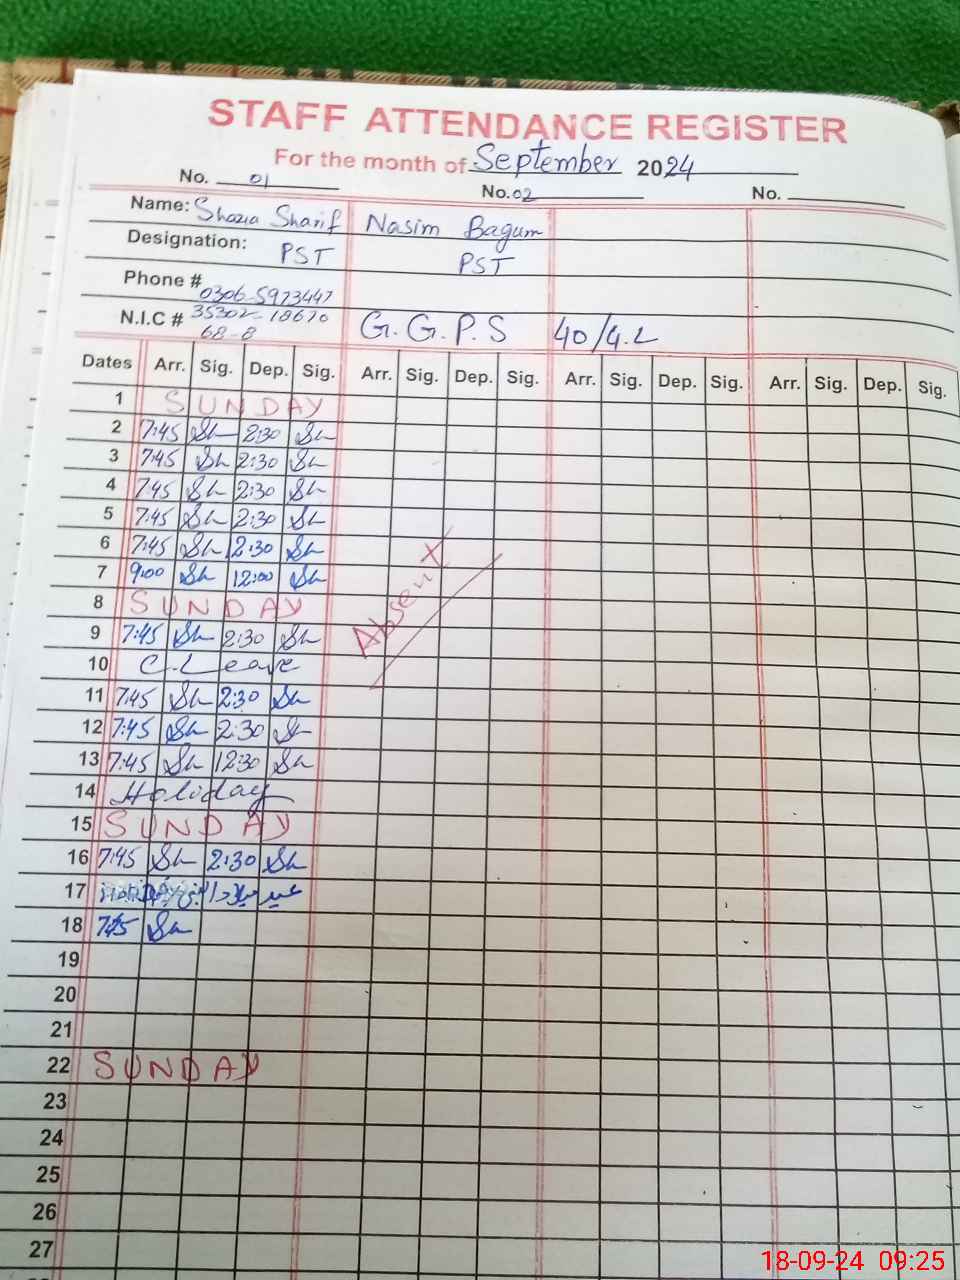 STAFF ATTENDANCE REGISTER
For the month of September 2024
No. 01 No. 02 No.
Name: Shazia Sharif Nasim Bagum
Designation: PST PST
Phone # 0306-5973447
N.I.C # 35302-18670 G.G.P.S 40/4.L
68-8
Dates Arr. Sig. Dep. Sig. Arr. Sig. Dep. Sig. Arr. Sig. Dep. Sig. Arr. Sig. Dep. Sig.
1 SUNDAY
2 7:45 Sh 2:30 Sh
3 7:45 Sh 2:30 Sh
4 7:45 Sh 2:30 Sh
5 7:45 Sh 2:30 Sh
6 7:45 Sh 2:30 Sh
7 9:00 Sh 12:00 Sh
8 SUNDAY
Absent
9 7:45 Sh 2:30 Sh
10 C.Leave
11 7:45 Sh 2:30 Sh
12 7:45 Sh 2:30 Sh
13 7:45 Sh 12:30 Sh
14 Holiday
15 SUNDAY
16 7:45 Sh 2:30 Sh
17 عید میلاد النبی
18 7:45 Sh
19
20
21
22 SUNDAY
23
24
25
26
27
18-09-24 09:25